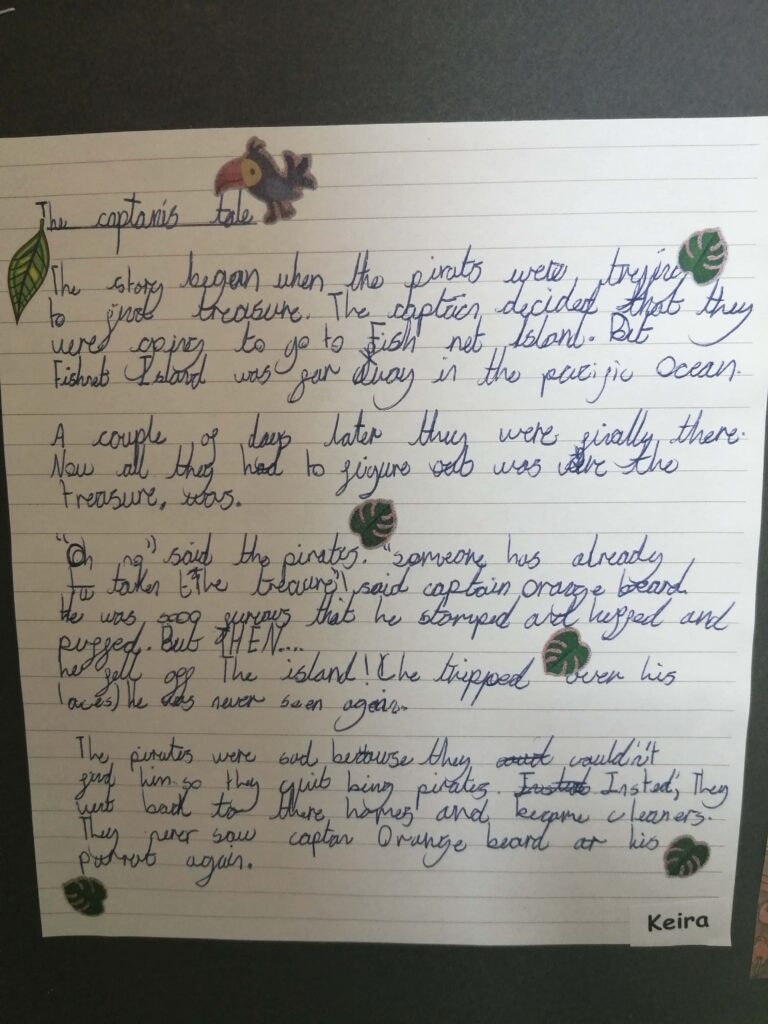 The captanis tale
The story began when the pirats were trying
to find treasure. The captain decided that they
were going to go to Fish net Island. But
Fishnet Island was far away in the pacific Ocean.
A couple of days later they were finally there.
Now all they had to figure out was were the
treasure, was.
"Oh no") said the pirates. "someone has already
taken the treasure" said captain orange beard.
He was sooo furious that he stamped and huffed and
puffed. But THEN....
he fell off The island! (he tripped over his
laces) he was never seen again.
The pirates were sad because they could couldn't
find him so they quit being pirates. Insted Insted, They
went back to there homes and became cleaners.
They never saw captan Orange beard or his
parrot again.
Keira